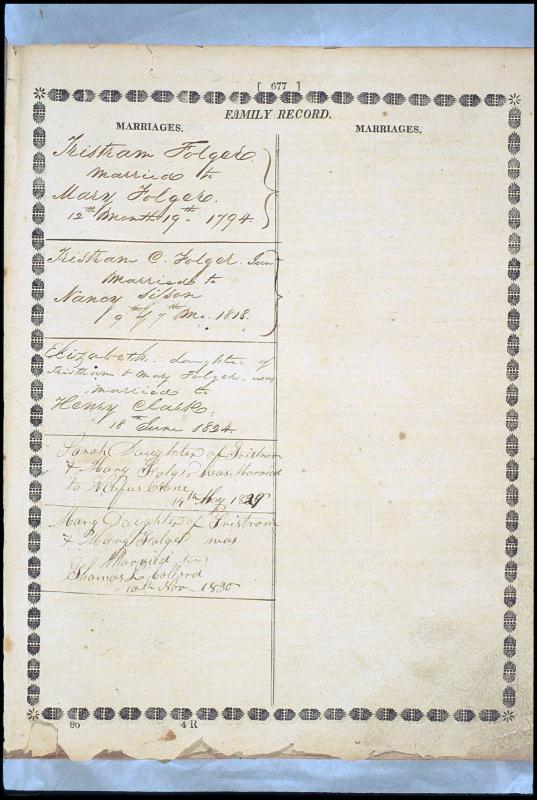 [ 677 ]
FAMILY RECORD.
MARRIAGES.
MARRIAGES.
Tristram Folger
Married to
Mary Folger.
12th Month 19th. 1794
Tristram C. Folger. Jun
Married to
Nancy Sisson
9th of 7th Mo. 1818.
Elizabeth. daughter of
Tristram & Mary Folger. was
Married to
Henry Clark,
18th June 1824
Sarah Daughter of Tristrom
& Mary Folger was Married
to Rufus
14th May
Mary Daughter of Tristrom
& Mary Folger was
Married to
Thomas
10th Nov 1830
86
4 R